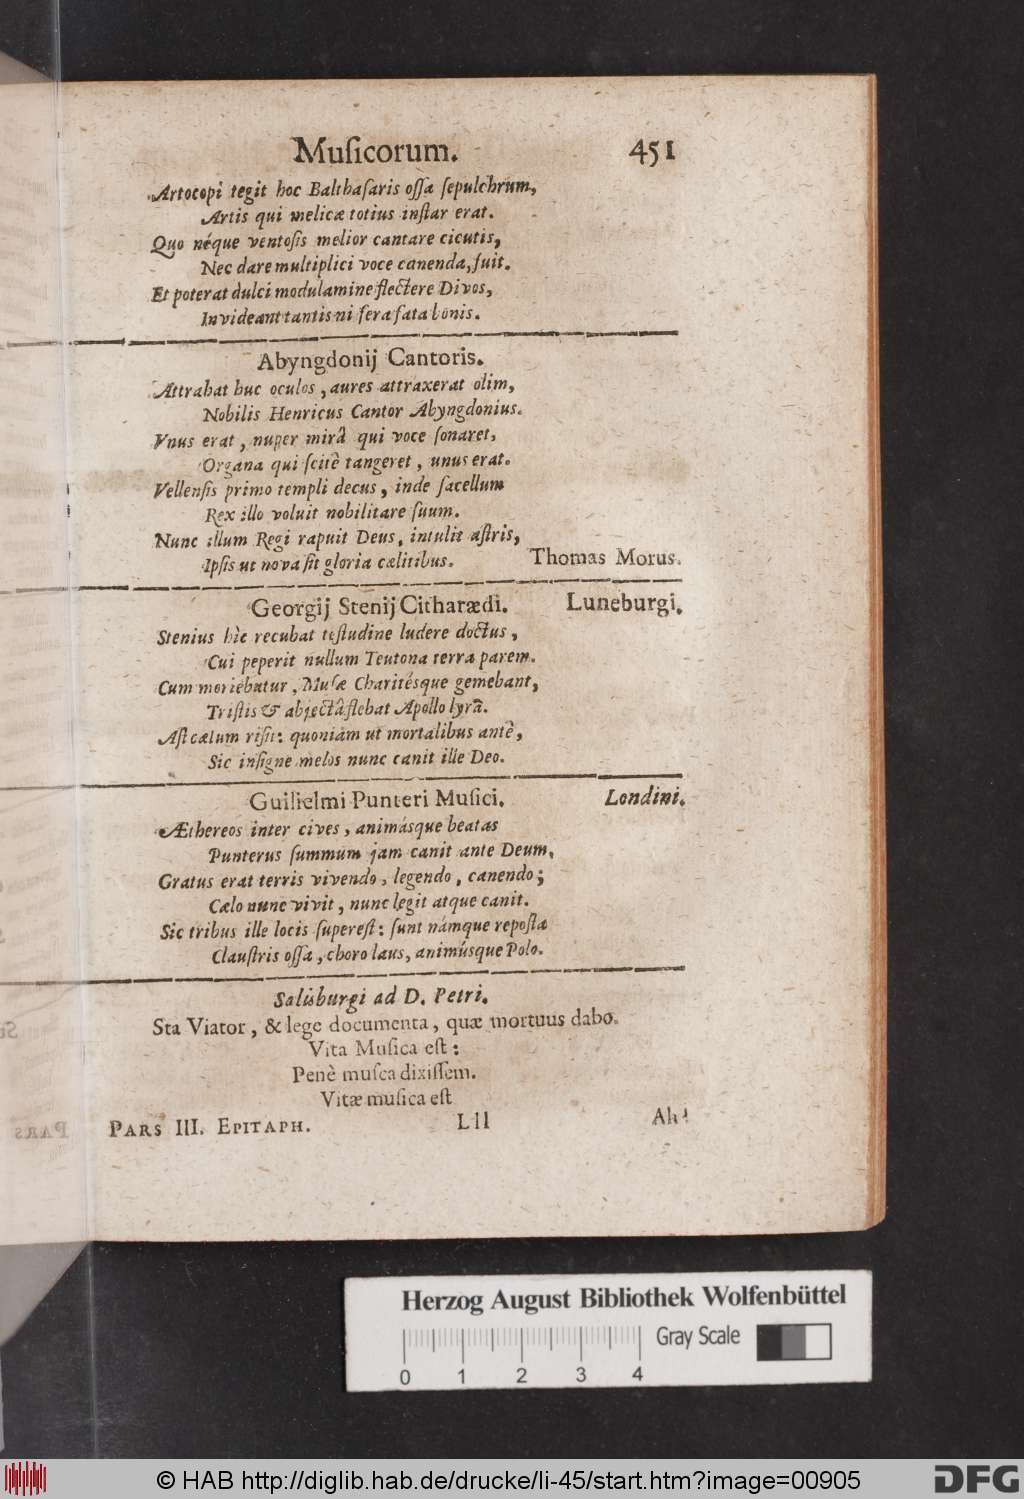 Muſicorum. 451
Artocopi tegit hoc Balthaſaris oſſa ſepulchrum,
Artis qui melicæ totius inſtar erat.
Quo néque ventoſis melior cantare cicutis,
Nec dare multiplici voce canenda, fuit.
Et poterat dulci modulamine flectere Divos,
Invideant tantis ni fera fata bonis.
Abyngdonij Cantoris.
Attrahat huc oculos, aures attraxerat olim,
Nobilis Henricus Cantor Abyngdonius.
Vnus erat, nuper mirâ qui voce ſonaret,
Organa qui ſcitè tangeret, unus erat.
Vellenſis primo templi decus, inde ſacellum
Rex illo voluit nobilitare ſuum.
Nunc illum Regi rapuit Deus, intulit aſtris,
Ipſis ut nova ſit gloria cælitibus. Thomas Morus.
Georgij Stenij Citharædi. Luneburgi.
Stenius hîc recubat teſtudine ludere doctus,
Cui peperit nullum Teutona terra parem.
Cum moriebatur, Muſæ Charitésque gemebant,
Triſtis & abjectâ flebat Apollo lyrâ.
Aſt cælum riſit: quoniam ut mortalibus antè,
Sic inſigne melos nunc canit ille Deo.
Guilielmi Punteri Muſici. Londini.
Æthereos inter cives, animásque beatas
Punterus ſummum jam canit ante Deum.
Gratus erat terris vivendo, legendo, canendo;
Cælo nunc vivit, nunc legit atque canit.
Sic tribus ille locis ſupereſt: ſunt námque repoſta
Clauſtris oſſa, choro laus, animúsque Polo.
Salisburgi ad D. Petri.
Sta Viator, & lege documenta, quæ mortuus dabo.
Vita Muſica eſt:
Penè muſca dixiſſem.
Vitæ muſica eſt
PARS III. EPITAPH. Lll Ah!
Herzog August Bibliothek Wolfenbüttel
Gray Scale
0 1 2 3 4
© HAB http://diglib.hab.de/drucke/li-45/start.htm?image=00905
DFG